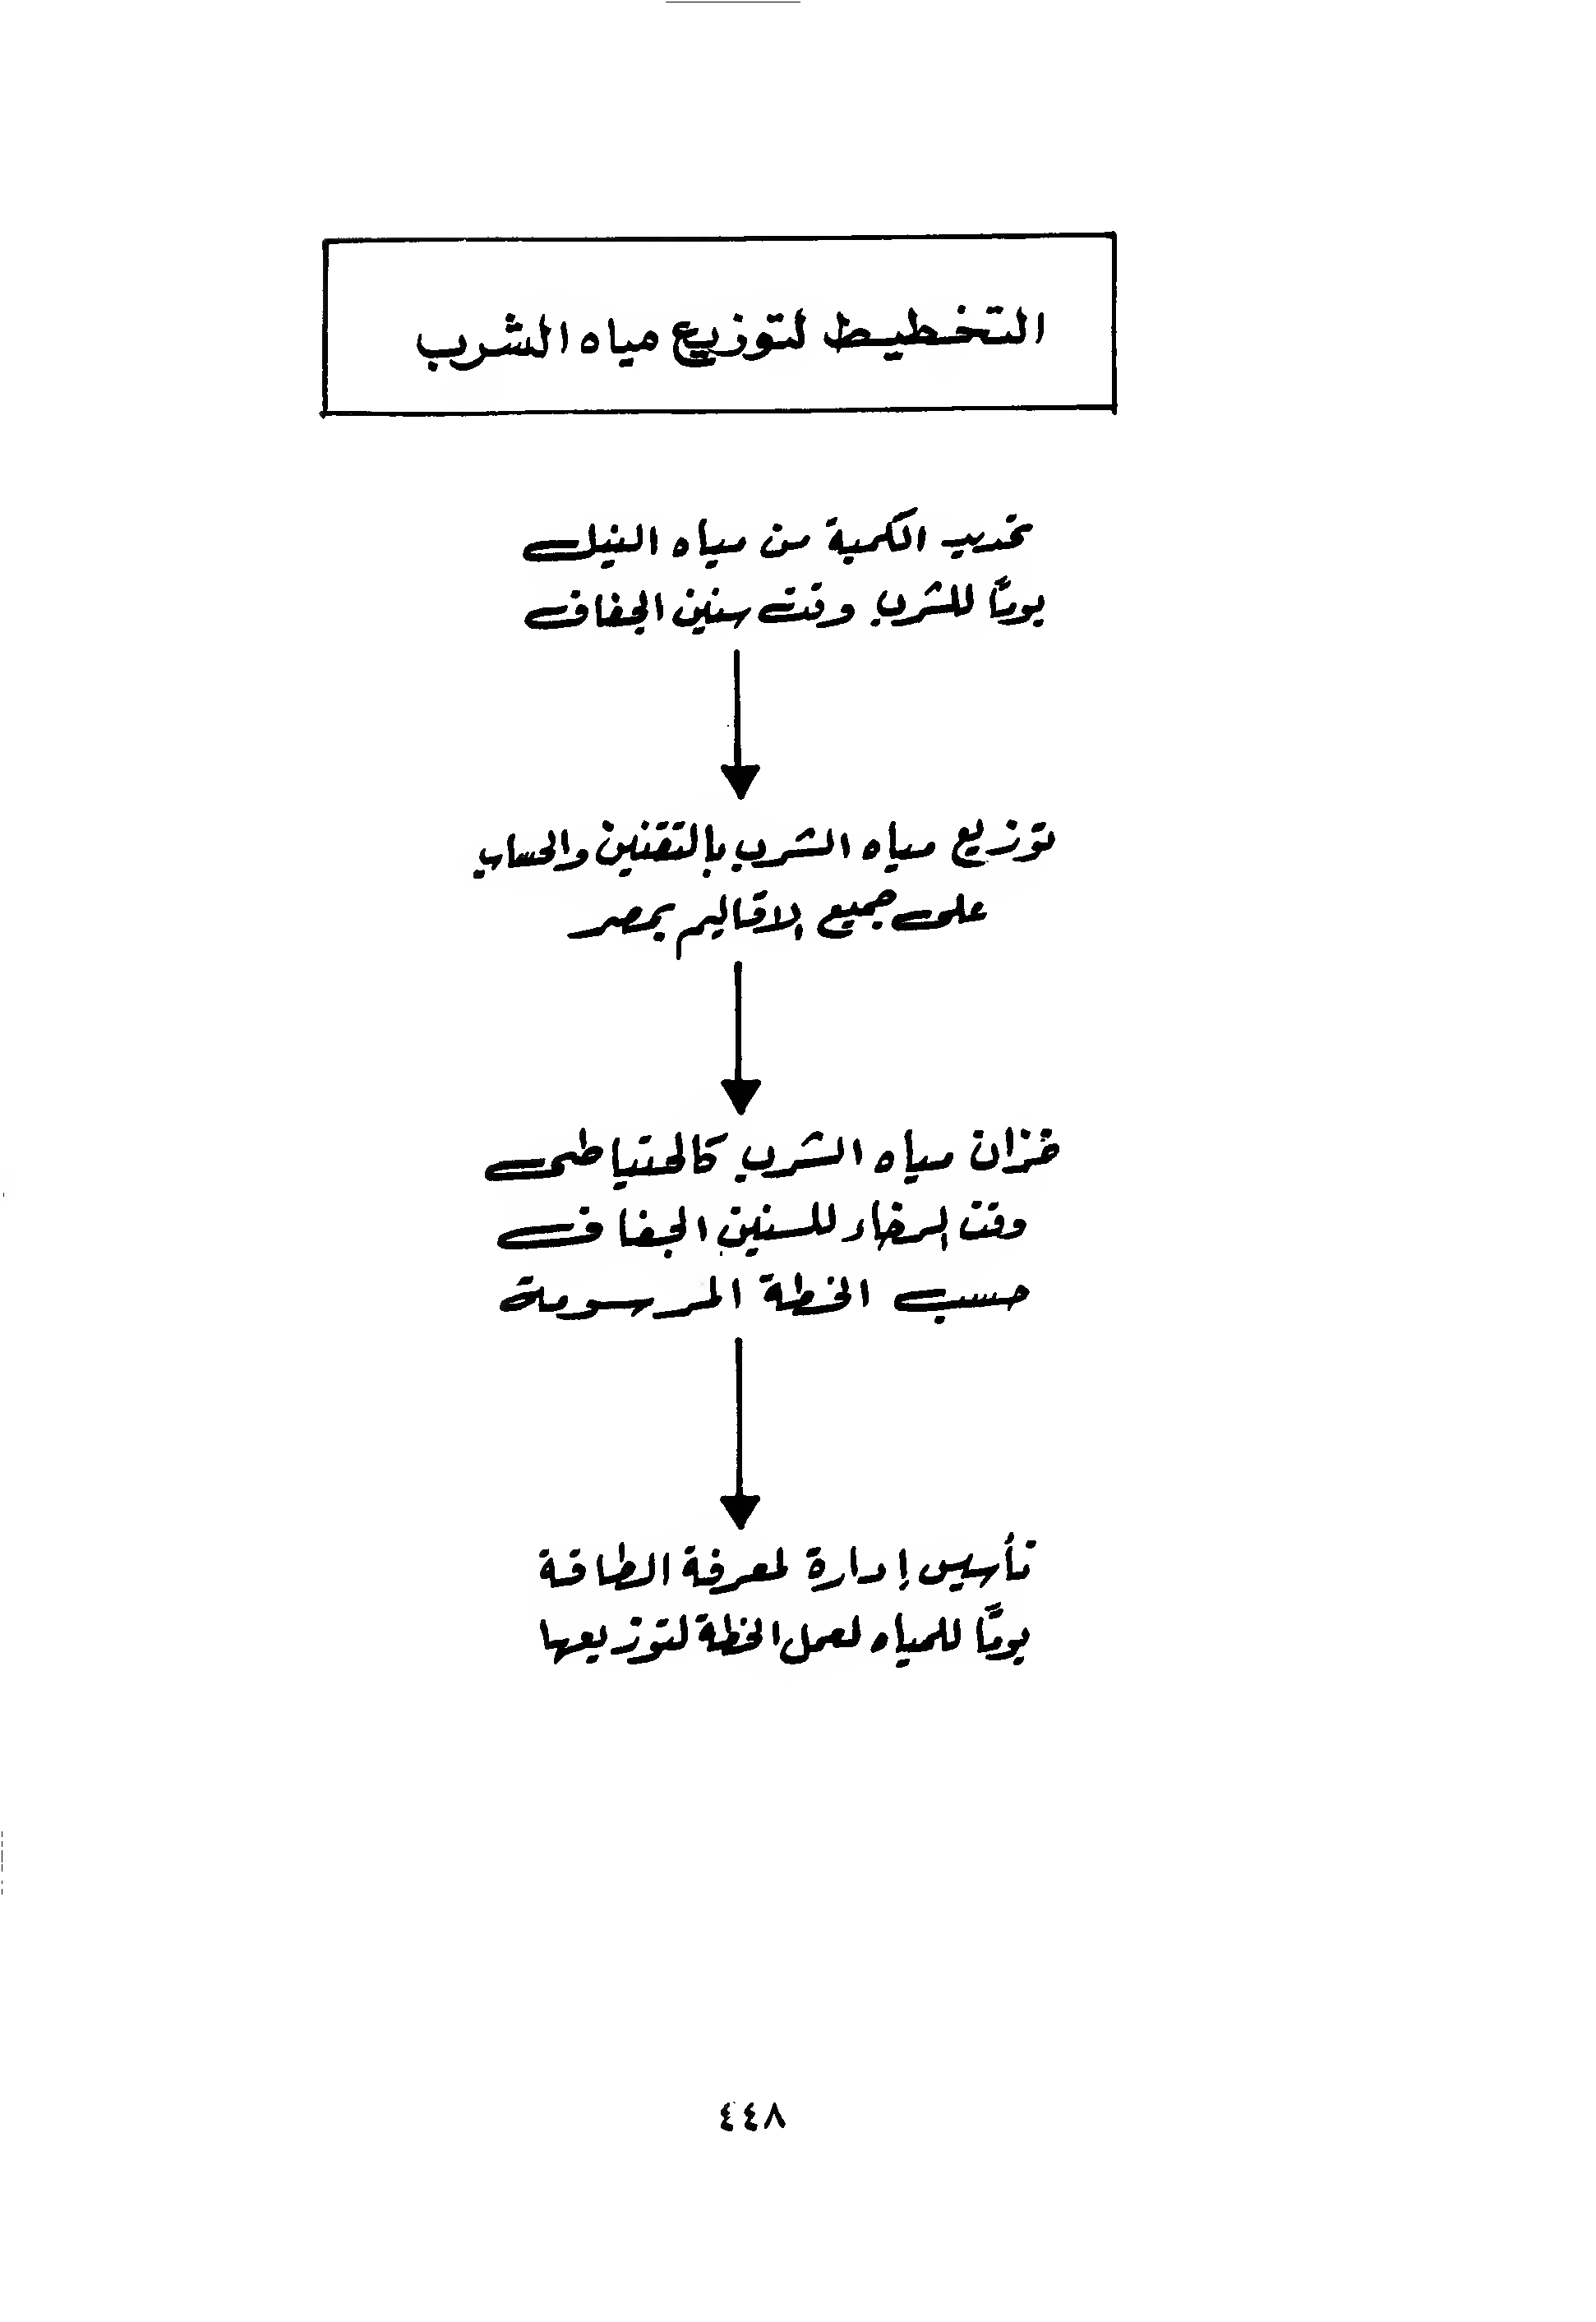 التخطيط لتوزيع مياه الشرب
تحديد الكمية من مياه النيل
يومًا للشرب وقت سنين الجفاف
توزيع مياه الشرب بالتقنين والحساب
على جميع الاقاليم بمصر
خزان مياه الشرب كالحتياطى
وقت الرخاء للسنين الجفاف
حسب الخطة المرسومة
تأسيس إدارة لمعرفة الطاقة
يومًا للمياه لعمل الخطة لتوزيعها
٤٤٨